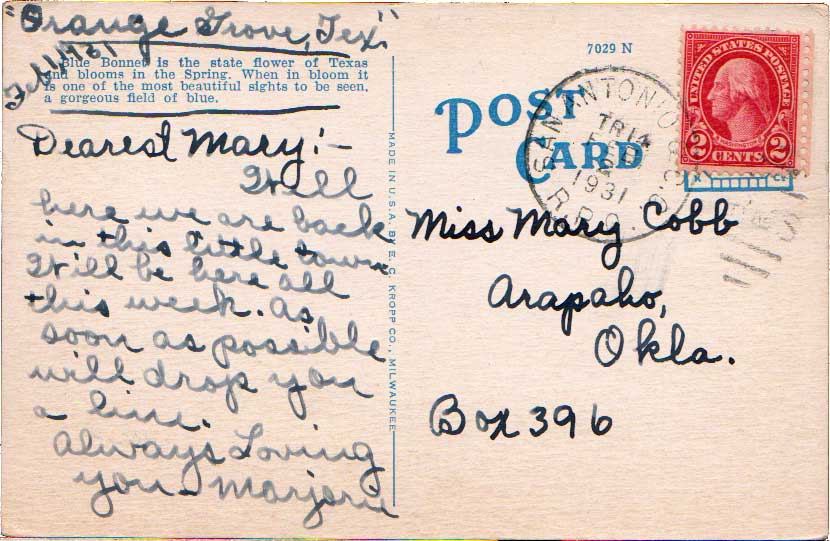 "Orange Grove, Tex."
Feb 1, 1931
Blue Bonnet is the state flower of Texas
and blooms in the Spring. When in bloom it
is one of the most beautiful sights to be seen,
a gorgeous field of blue.
Dearest Mary:-
Well
here we are back
in this little town
Will be here all
this week. As
soon as possible
will drop you
a line.
Always Loving
you - Marjorie
MADE IN U.S.A. BY E. C. KROPP CO., MILWAUKEE
7029 N
POST
CARD
SAN ANTONIO
TR 14
FEB
2
1931
R.P.O.
UNITED STATES POSTAGE
2 CENTS 2
Miss Mary Cobb
Arapaho,
Okla.
Box 396